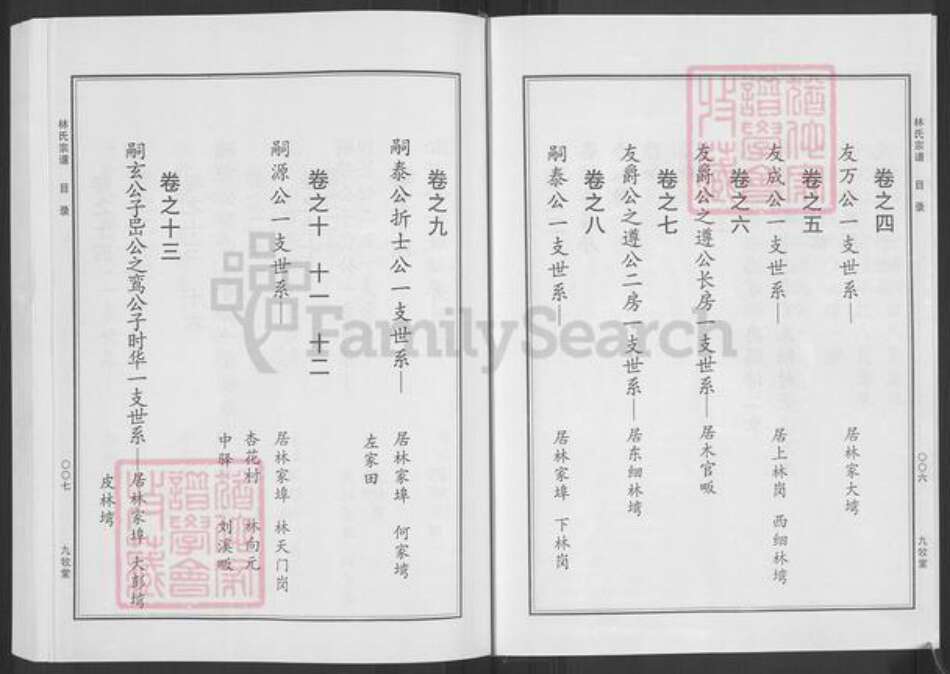 林氏宗谱 目录
〇〇六
九牧堂
卷之四
友万公一支世系——居林家大塆
卷之五
友成公一支世系——居上林岗 西细林塆
卷之六
友爵公之遵公长房一支世系——居木官畈
卷之七
友爵公之遵公二房一支世系——居东细林塆
卷之八
嗣泰公一支世系——居林家埠 下林岗
卷之九
嗣泰公折士公一支世系——居林家埠 何家塆
左家田
卷之十 十一 十二
嗣源公一支世系——居林家埠 林天门岗
杏花村 林向元
中驿 刘溪畈
卷之十三
嗣玄公子岊公之鸾公子时华一支世系——居林家埠 大彭塆
皮林塆
林氏宗谱 目录
〇〇七
九牧堂
FamilySearch